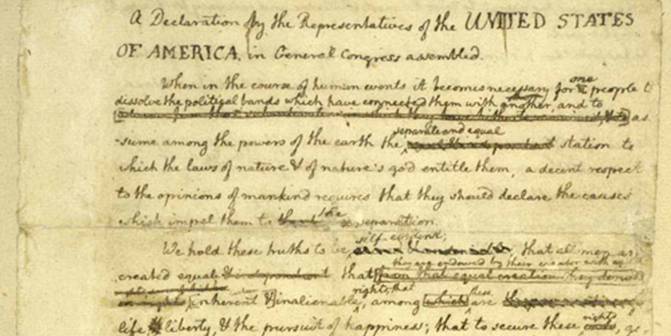 A Declaration by the Representatives of the UNITED STATES
OF AMERICA, in General Congress assembled.
When in the course of human events it becomes necessary for one people to
dissolve the political bands which have connected them with another, and to
as
-sume among the powers of the earth the separate and equal station to
which the laws of nature & of nature's god entitle them, a decent respect
to the opinions of mankind requires that they should declare the causes
which impel them to the separation.
We hold these truths to be self-evident; that all men are
created equal & independent that they are endowed by their creator with from that equal creation they derive
rights that
inherent & inalienable, among which these are
life liberty, & the pursuit of happiness; that to secure these rights